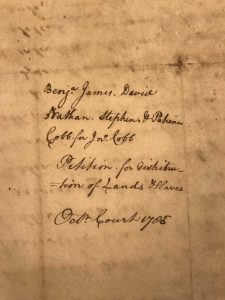 Benja. James. David
Nathan. Stephen & Patience
Cobb. for Jno. Cobb
Petition. for Distribu-
=tion of Lands & Slaves
Octr. Court 1786